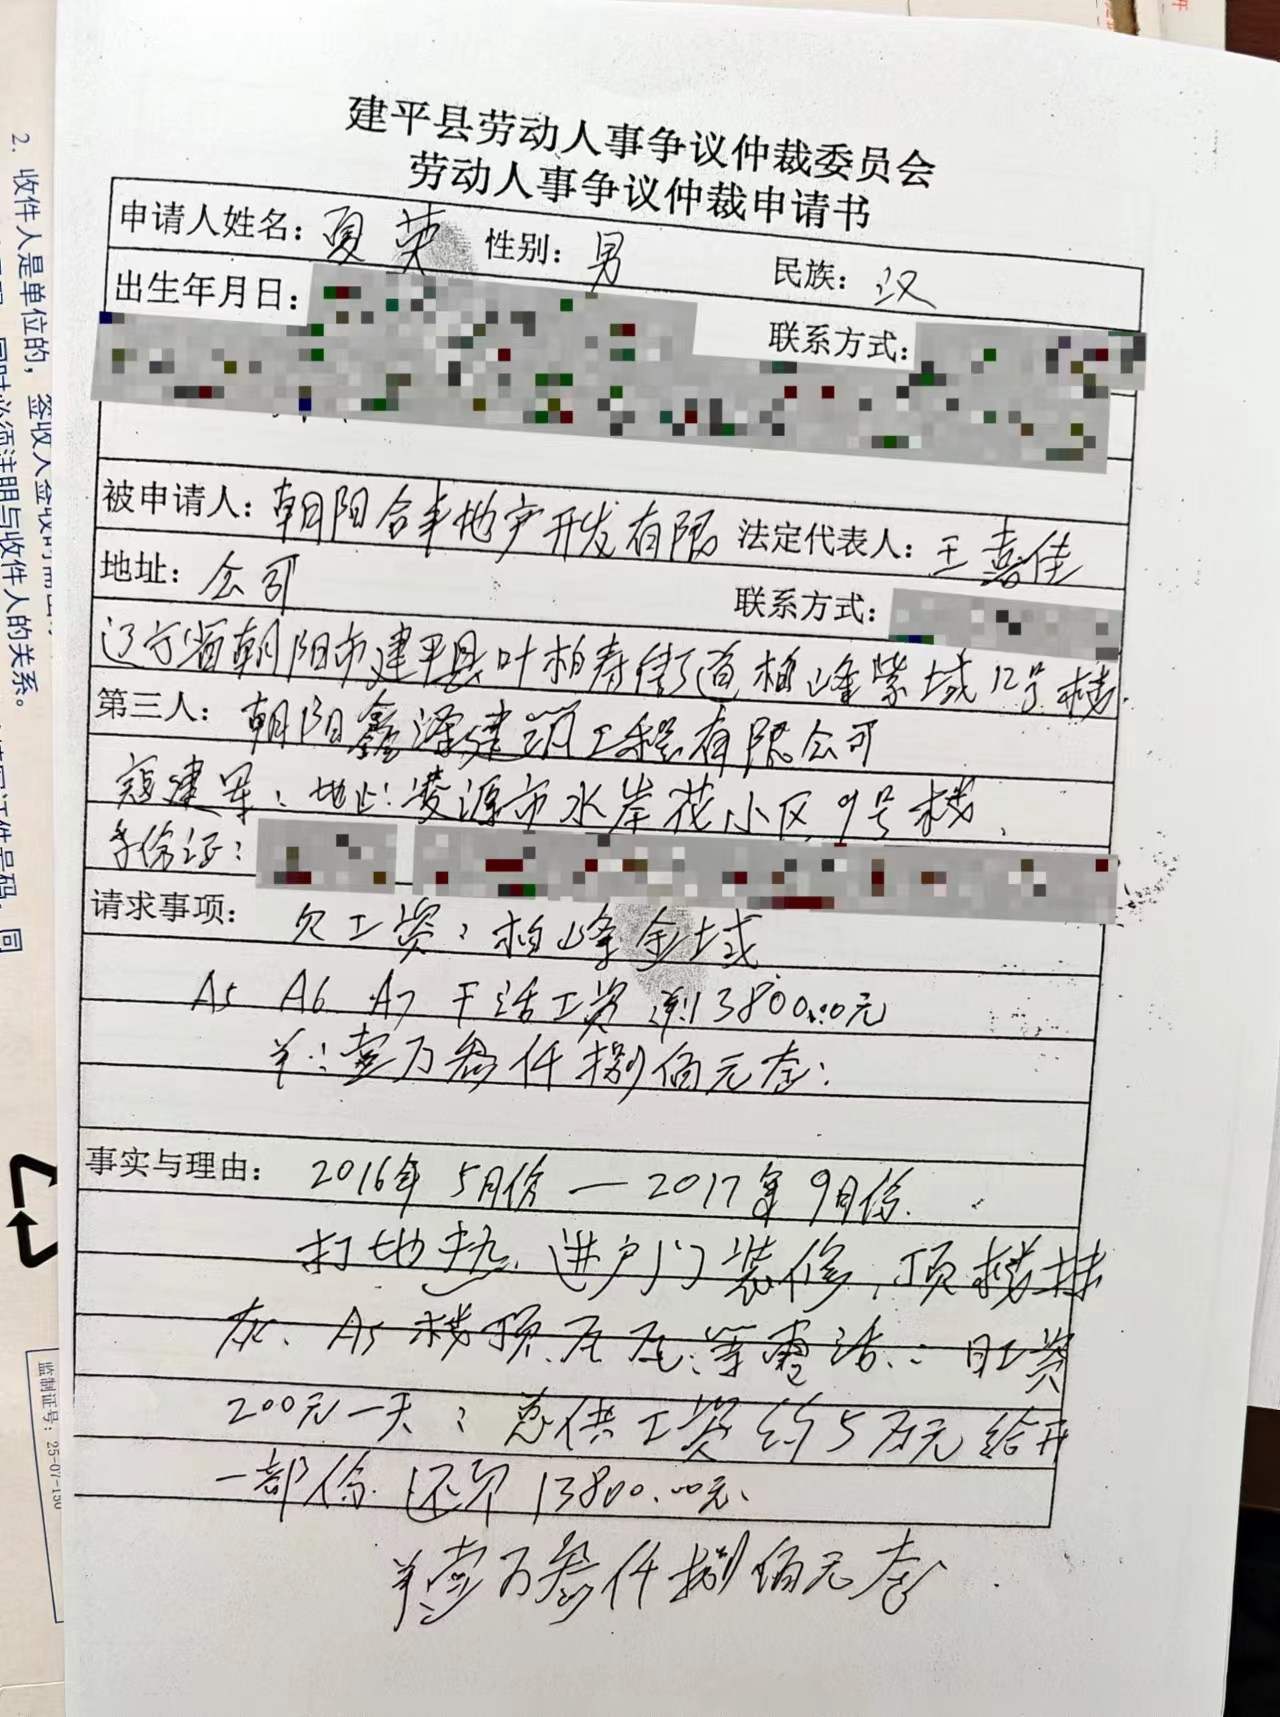 建平县劳动人事争议仲裁委员会
劳动人事争议仲裁申请书
申请人姓名：夏荣 性别：男 民族：汉
出生年月日： 联系方式：
被申请人：朝阳合丰地产开发有限 法定代表人：王喜佳
地址：公司 联系方式：
辽宁省朝阳市建平县叶柏寿街道柏峰紫域12号楼.
第三人：朝阳鑫泽建筑工程有限公司
寇建军：地址：凌源市水岸花小区9号楼
身份证：
请求事项：欠工资：柏峰金域
A5 A6 A7 干活工资 13800.00元
羊：壹万叁仟捌佰元整：
事实与理由：2016年5月份—2017年9月份.
打地热、进户门装修，顶楼抹
灰、A5楼顶瓦瓦，等零活：日工资
200元一天；总供工资约5万元给开
一部份 还欠13800.00元、
羊壹万叁仟捌佰元整
2. 收件人是单位的，签收人
同时必须注明与收件人的关系。
监制证号：25-07-150